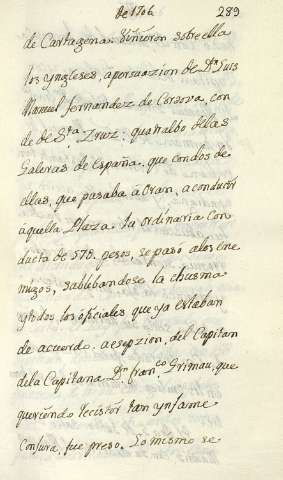 de 1706 289
de Cartagena. Viñieron sobre ella
los yngleses, a porsuazion de Dn. Luis
Manuel fernandez de Cordova, con
de de Sta. Zruz: quattralbo de las
Galeras de España. que con dos de
ellas, que pasaba â Oran, a conducir
â quella Plaza. la ordinaria con
ducta de 57D. pesos, se paso a los ene
migos, sablebandose la chusma
y todos los ofiziales que ya estaban
de acuerdo. a esepzion, del Capitan
de la Capitana. Dn. franco. Grimau, que
queriendo recistir tan ynfame
conjura, fue preso. Lo mismo se